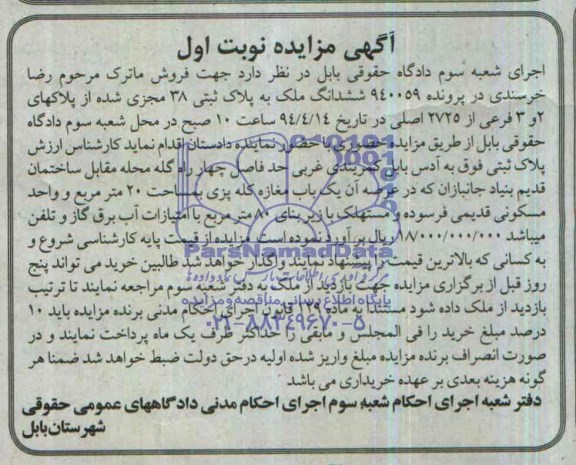 آگهی مزایده نوبت اول
اجرای شعبه سوم دادگاه حقوقی بابل در نظر دارد جهت فروش ماترک مرحوم رضا
خرسندی در پرونده ۹۴۰۰۵۹ ششدانگ ملک به پلاک ثبتی ۳۸ مجزی شده از پلاکهای
۲و ۳ فرعی از ۲۷۲۵ اصلی در تاریخ ۹۴/۴/۱۴ ساعت ۱۰ صبح در محل شعبه سوم دادگاه
حقوقی بابل از طریق مزایده حضوری با حضور نماینده دادستان اقدام نماید کارشناس ارزش
پلاک ثبتی فوق به آدس بابل کمربندی غربی حد فاصل چهار راه گله محله مقابل ساختمان
قدیم بنیاد جانبازان که در عرصه آن یک باب مغازه کله پزی بمساحت ۲۰ متر مربع و واحد
مسکونی قدیمی فرسوده و مستهلک با زیر بنای ۸۰ متر مربع با امتیازات آب برق گاز و تلفن
میباشد ۱۸/۰۰۰/۰۰۰/۰۰۰ ریال برآورد نموده است مزایده از قیمت پایه کارشناسی شروع و
به کسانی که بالاترین قیمت را پیشنهاد نمایند واگذار خواهد شد طالبین خرید می تواند پنج
روز قبل از برگزاری مزایده جهت بازدید از ملک به دفتر شعبه سوم مراجعه نمایند تا ترتیب
بازدید از ملک داده شود مستندا به ماده ۱۲۹ قانون اجرای احکام مدنی برنده مزایده باید ۱۰
درصد مبلغ خرید را فی المجلس و مابقی را حداکثر ظرف یک ماه پرداخت نمایند و در
صورت انصراف برنده مزایده مبلغ واریز شده اولیه درحق دولت ضبط خواهد شد ضمنا هر
گونه هزینه بعدی بر عهده خریداری می باشد
دفتر شعبه اجرای احکام شعبه سوم اجرای احکام مدنی دادگاههای عمومی حقوقی
شهرستان بابل
ParsNamadData
پایگاه اطلاع رسانی مناقصه و مزایده
۰۲۱-۸۸۳۴۹۶۷۰-۵